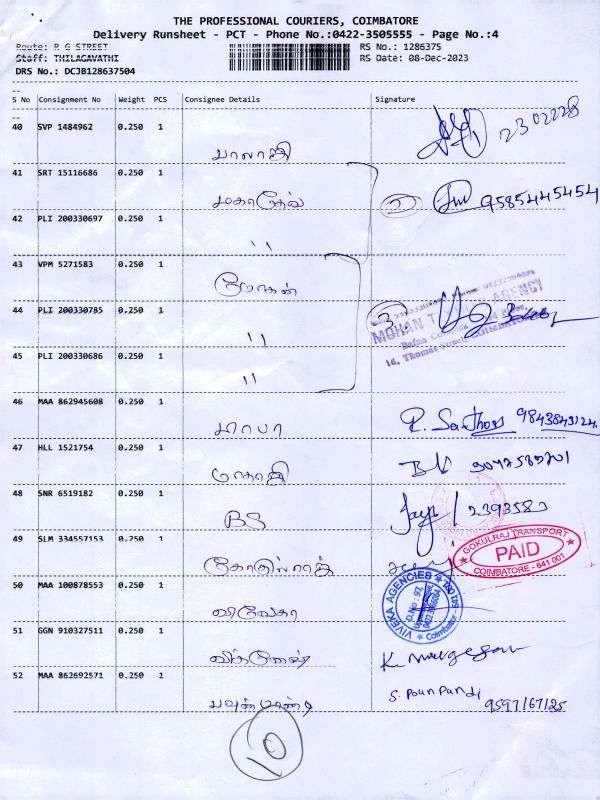 THE PROFESSIONAL COURIERS, COIMBATORE
Delivery Runsheet - PCT - Phone No.:0422-3505555 - Page No.:4
Route: R G STREET RS No.: 1286375
Staff: THILAGAVATHI RS Date: 08-Dec-2023
DRS No.: DCJB128637504
S No Consignment No Weight PCS Consignee Details Signature
40 SVP 1484962 0.250 1 பாலாஜி 2302228
41 SRT 15116686 0.250 1 மகாதேவ் 2 9585445454
42 PLI 200330697 0.250 1 "
43 VPM 5271583 0.250 1 மோகன்
44 PLI 200330785 0.250 1 " 3
MOHAN AGENCY
16, Thomas Street, COIMBATORE
45 PLI 200330686 0.250 1 "
46 MAA 862945608 0.250 1 R. Santhos 9843843124
47 HLL 1521754 0.250 1 பாலாஜி
48 SNR 6519182 0.250 1 BS Jaya / 2393583
49 SLM 334557153 0.250 1
GOKULRAJ TRANSPORT
PAID
COIMBATORE - 641 001
50 MAA 100878553 0.250 1 விவேகா
VIVEKA AGENCIES
Coimbatore - 641 001
51 GGN 910327511 0.250 1 விக்னேஷ் K. Murugesan
52 MAA 862692571 0.250 1 பவுன்பாண்டி S. Pounpandi
9597167125
10